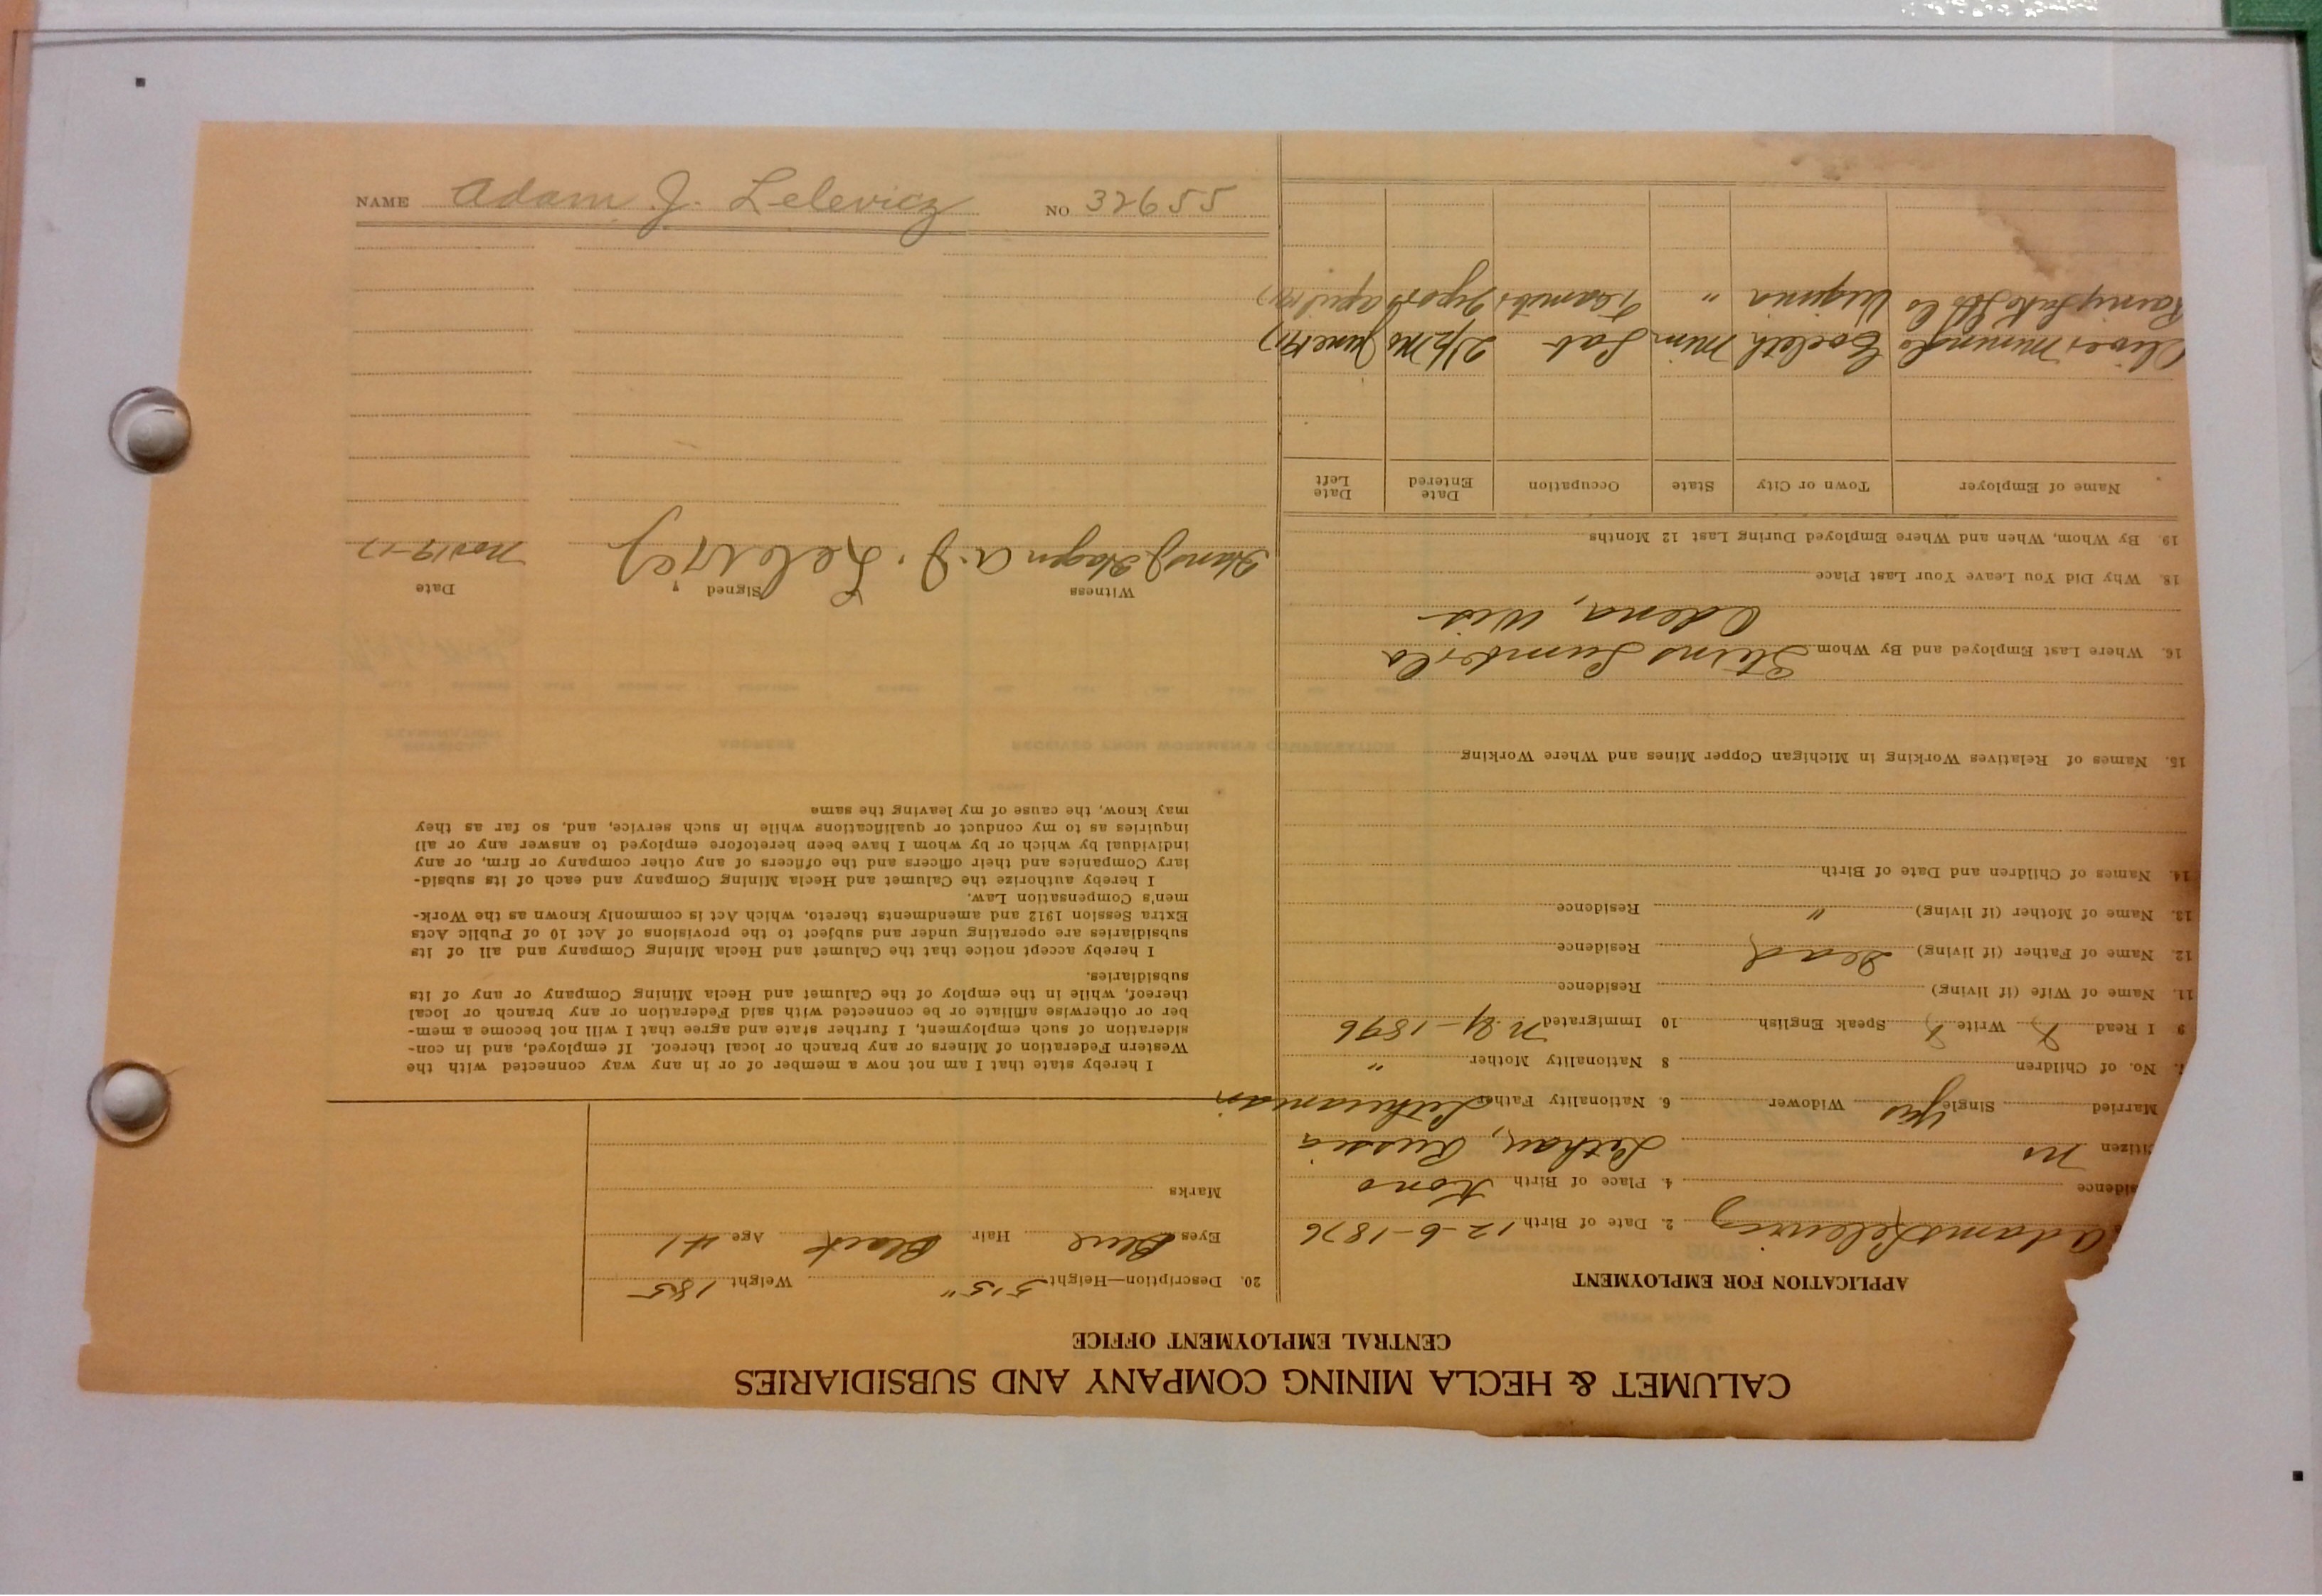 CALUMET & HECLA MINING COMPANY AND SUBSIDIARIES
CENTRAL EMPLOYMENT OFFICE
APPLICATION FOR EMPLOYMENT
Adam Lelewicz 2. Date of Birth 12-6-1876
idence 4. Place of Birth Kono
itizen no Lithau, Russia
Married Single yes Widower 6. Nationality Father Lithuanian
No. of Children 8 Nationality Mother "
9 I Read X Write X Speak English 10 Immigrated N.Y - 1896
11. Name of Wife (if living) Residence
12. Name of Father (if living) Dead Residence
13. Name of Mother (if living) " Residence
14. Names of Children and Date of Birth
15. Names of Relatives Working in Michigan Copper Mines and Where Working
16. Where Last Employed and By Whom Sterns Lumber Co
Odena, Wis
18. Why Did You Leave Your Last Place
19. By Whom, When and Where Employed During Last 12 Months
Name of Employer Town or City State Occupation Date Entered Date Left
Oliver Mining Co Eveleth Minn Lab 2 1/2 Mo June 1917
Rainy Lake Co Virginia " Teamster April 1917
20. Description—Height 5'5" Weight 185
Eyes Blue Hair Black Age 41
Marks
I hereby state that I am not now a member of or in any way connected with the
Western Federation of Miners or any branch or local thereof. If employed, and in con-
sideration of such employment, I further state and agree that I will not become a mem-
ber or otherwise affiliate or be connected with said Federation or any branch or local
thereof, while in the employ of the Calumet and Hecla Mining Company or any of its
subsidiaries.
I hereby accept notice that the Calumet and Hecla Mining Company and all of its
subsidiaries are operating under and subject to the provisions of Act 10 of Public Acts
Extra Session 1912 and amendments thereto, which Act is commonly known as the Work-
men's Compensation Law.
I hereby authorize the Calumet and Hecla Mining Company and each of its subsid-
iary Companies and their officers and the officers of any other company or firm, or any
individual by which or by whom I have been heretofore employed to answer any or all
inquiries as to my conduct or qualifications while in such service, and, so far as they
may know, the cause of my leaving the same
Witness Signed Date
Hans J Hagen A. J. Lelewicz Nov 19-17
NAME Adam J. Lelevicz NO 32655